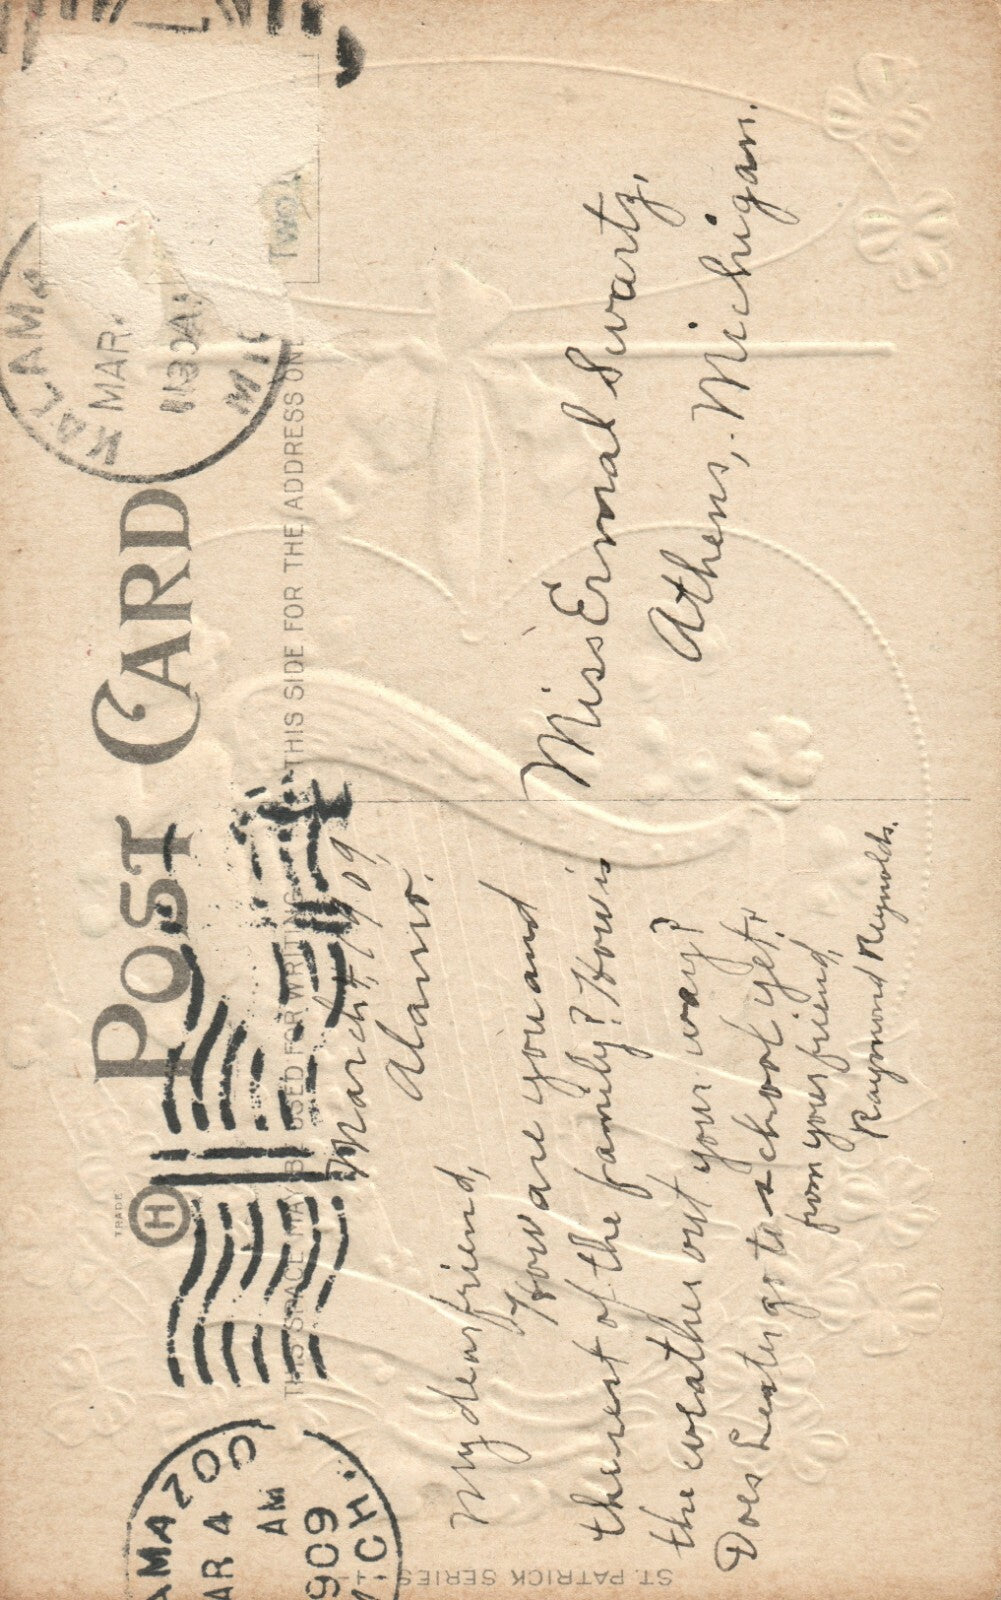 POST CARD
TRADE
H
THIS SPACE MAY BE USED FOR WRITING
THIS SIDE FOR THE ADDRESS ONL
TWO
KALAMA
MAR.
1130 A
MIC
AMAZOO
AR 4
AM
909
ICH.
March 4, 1909,
Alamo.
My dear friend,
How are you and
the rest of the family? How is
the weather out your way?
Does Lester go to school yet?
from your friend,
Raymond Reynolds.
Miss Ermal Swartz,
Athens, Michigan.
ST. PATRICK SERIES